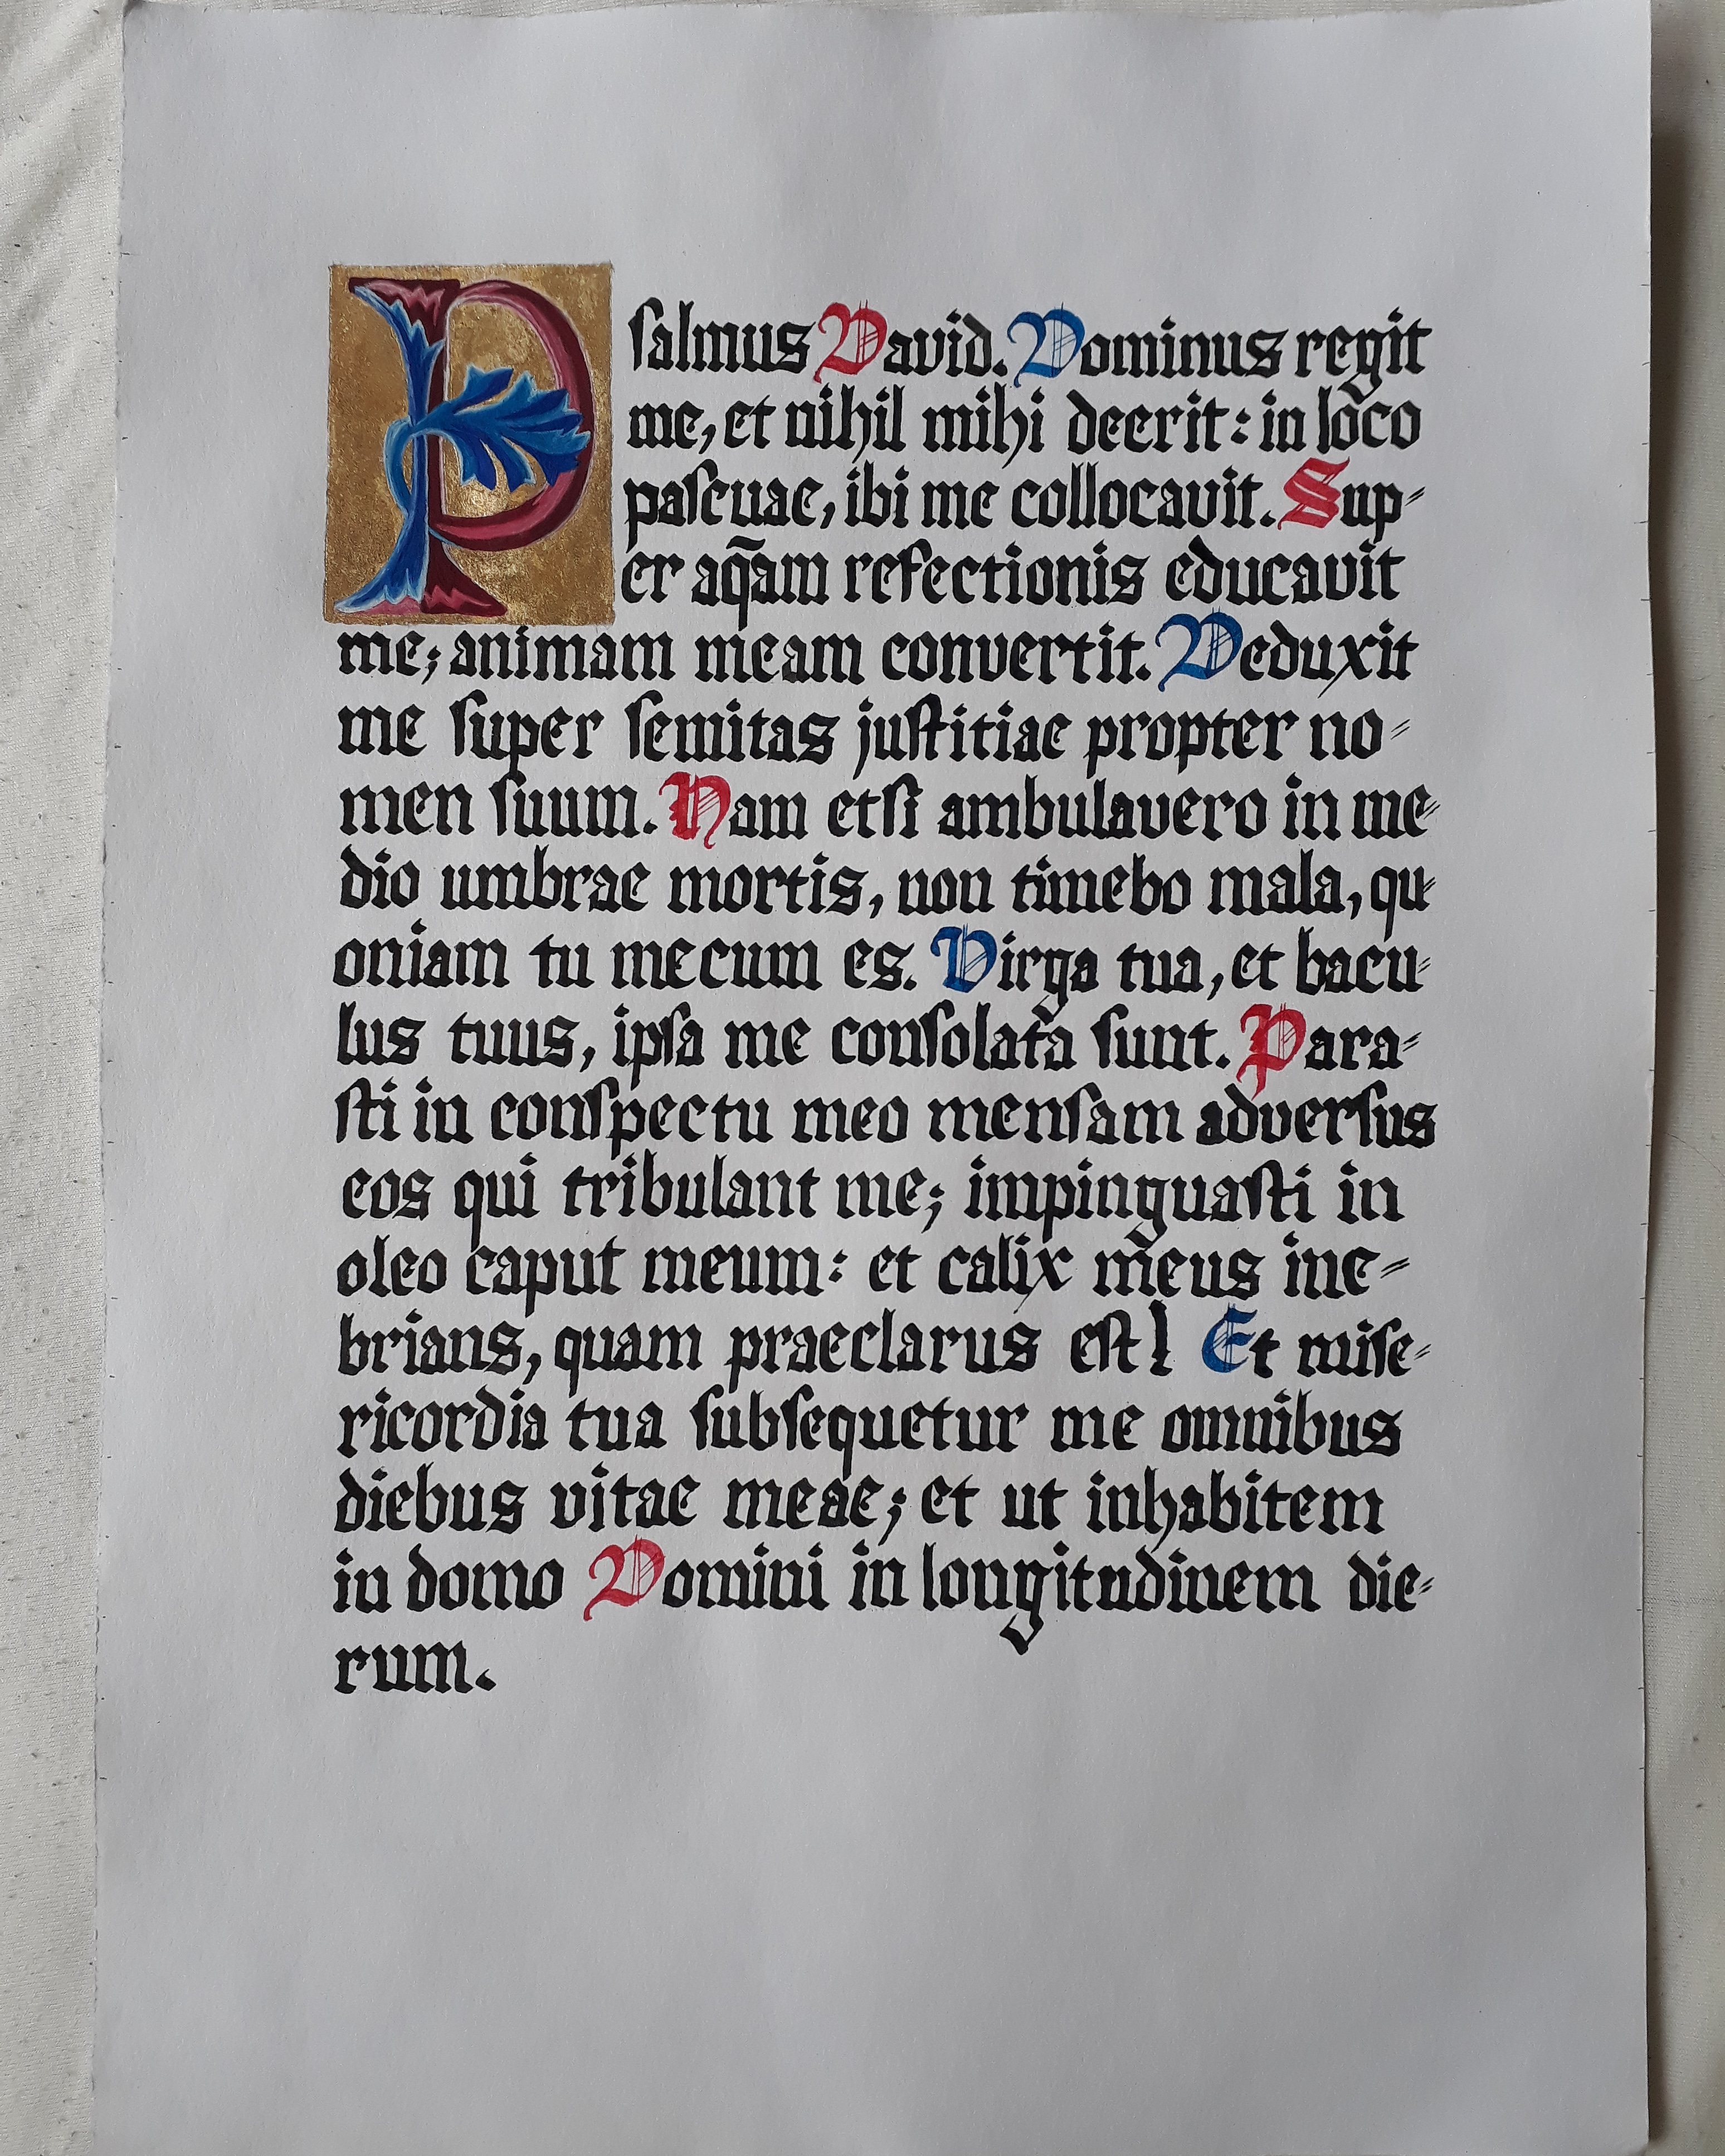 Pſalmus David. Dominus regit
me, et nihil mihi deerit: in lōco
paſcuae, ibi me collocavit. Sup-
er aq̄am refectionis educavit
me; animam meam convertit. Deduxit
me ſuper ſemitas juſtitiae propter no-
men ſuum. Nam etſi ambulavero in me-
dio umbrae mortis, non timebo mala, qu-
oniam tu mecum es. Virga tua, et bacu-
lus tuus, ipſa me conſolata ſunt. Para-
ſti in conſpectu meo menſam adverſus
eos qui tribulant me; impinguaſti in
oleo caput meum: et calix m̄eus ine-
brians, quam praeclarus eſt! Et miſe-
ricordia tua ſubſequetur me omnibus
diebus vitae meae; et ut inhabitem
in domo Domini in longitudinem die-
rum.